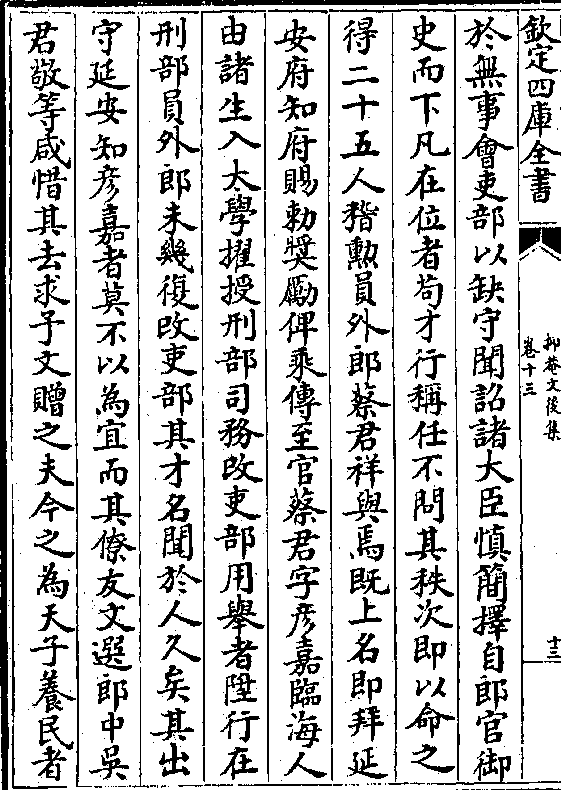 欽定四庫全書
抑菴文後集
卷十三
十三
於無事會吏部以缺守聞詔諸大臣慎簡擇自郎官御
史而下凡在位者苟才行稱任不問其秩次即以命之
得二十五人稽勲員外郎蔡君祥與焉既上名即拜延
安府知府賜勅奬勵俾乘傳至官蔡君字彦嘉臨海人
由諸生入太學擢授刑部司務改吏部用舉者陞行在
刑部員外郎未幾復改吏部其才名聞於人久矣其出
守延安知彦嘉者莫不以為宜而其僚友文選郎中吳
君敬等咸惜其去求予文贈之夫今之為天子養民者